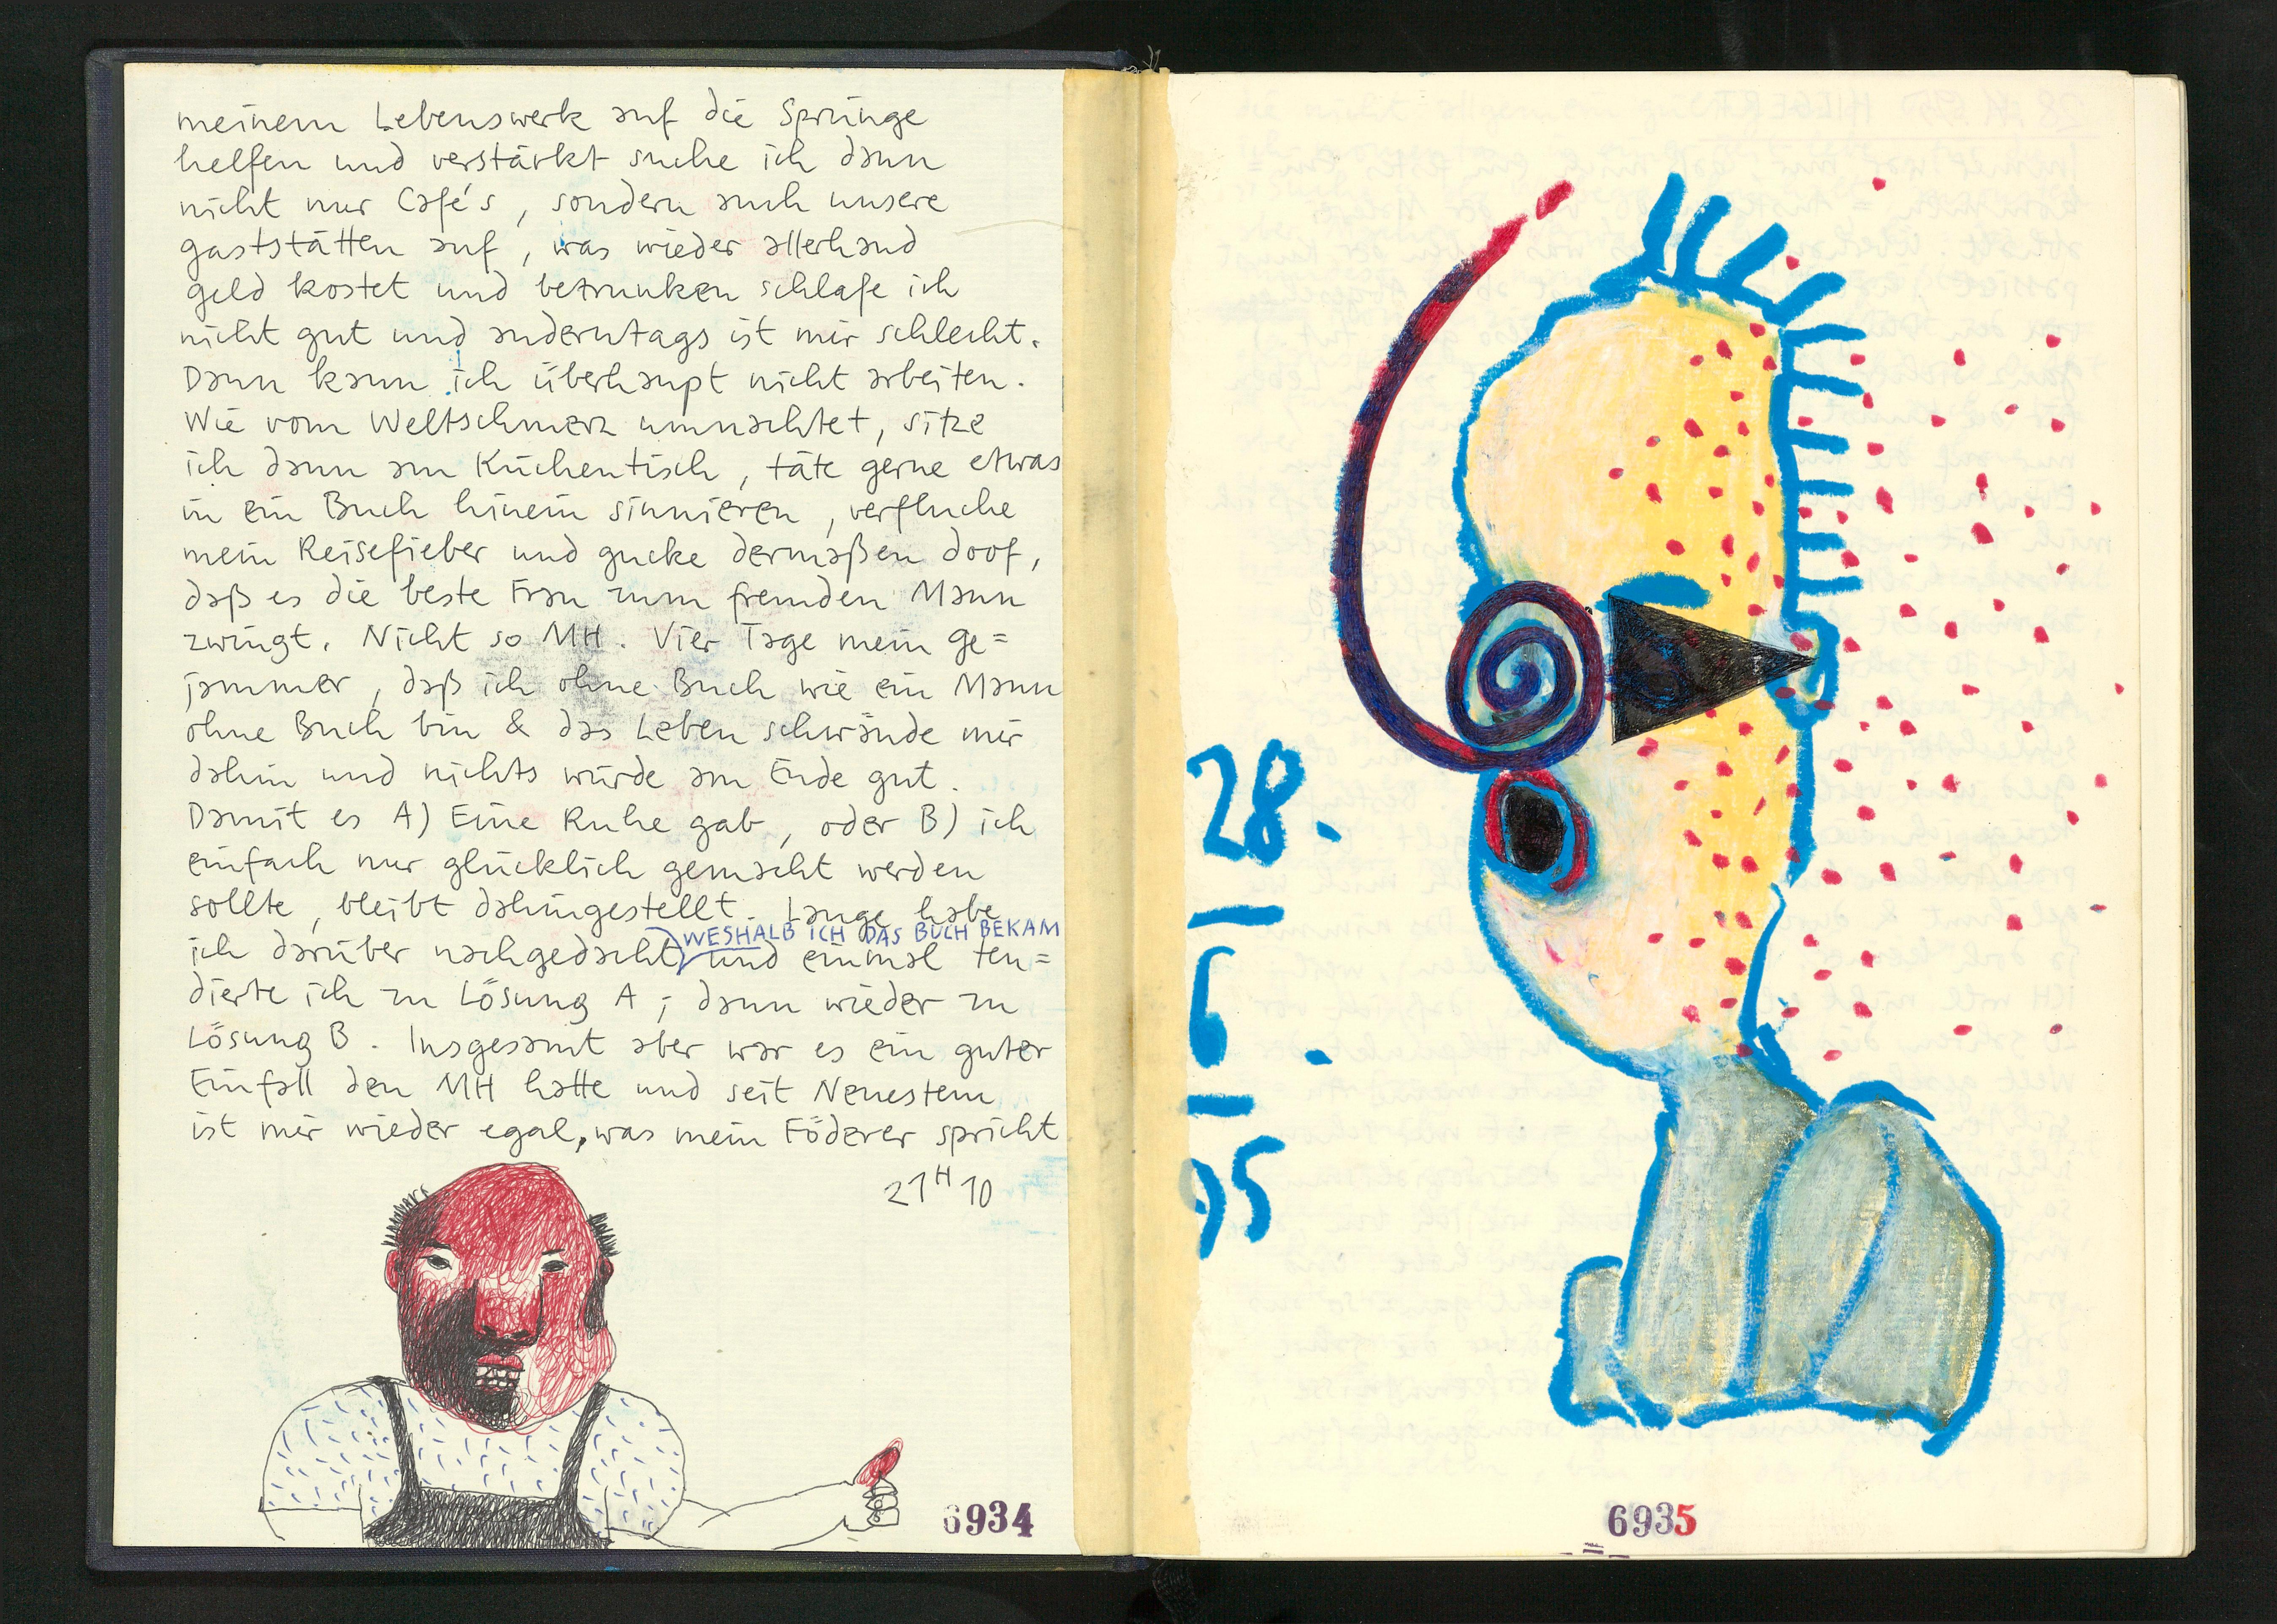 meinem Lebenswerk auf die Sprünge
helfen und verstärkt suche ich dann
nicht nur Café's, sondern auch unsere
gaststätten auf, was wieder allerhand
geld kostet und betrunken schlafe ich
nicht gut und anderntags ist mir schlecht.
Dann kann ich überhaupt nicht arbeiten.
Wie vom Weltschmerz umnachtet, sitze
ich dann am Küchentisch, täte gerne etwas
in ein Buch hinein sinnieren, verfluche
mein Reisefieber und gucke dermaßen doof,
daß es die beste Frau zum fremden Mann
zwingt. Nicht so MH. Vier Tage mein ge=
jammer, daß ich ohne Buch wie ein Mann
ohne Buch bin & das Leben schwände mir
dahin und nichts würde am Ende gut.
Damit es A) Eine Ruhe gab, oder B) ich
einfach nur glücklich gemacht werden
sollte, bleibt dahingestellt. Lange habe
WESHALB ICH DAS BUCH BEKAM
ich darüber nachgedacht, und einmal ten=
dierte ich zu Lösung A; dann wieder zu
Lösung B. Insgesamt aber war es ein guter
Einfall den MH hatte und seit Neuestem
ist mir wieder egal, was mein Föderer spricht
21H10
6934
28.
6.
95
6935